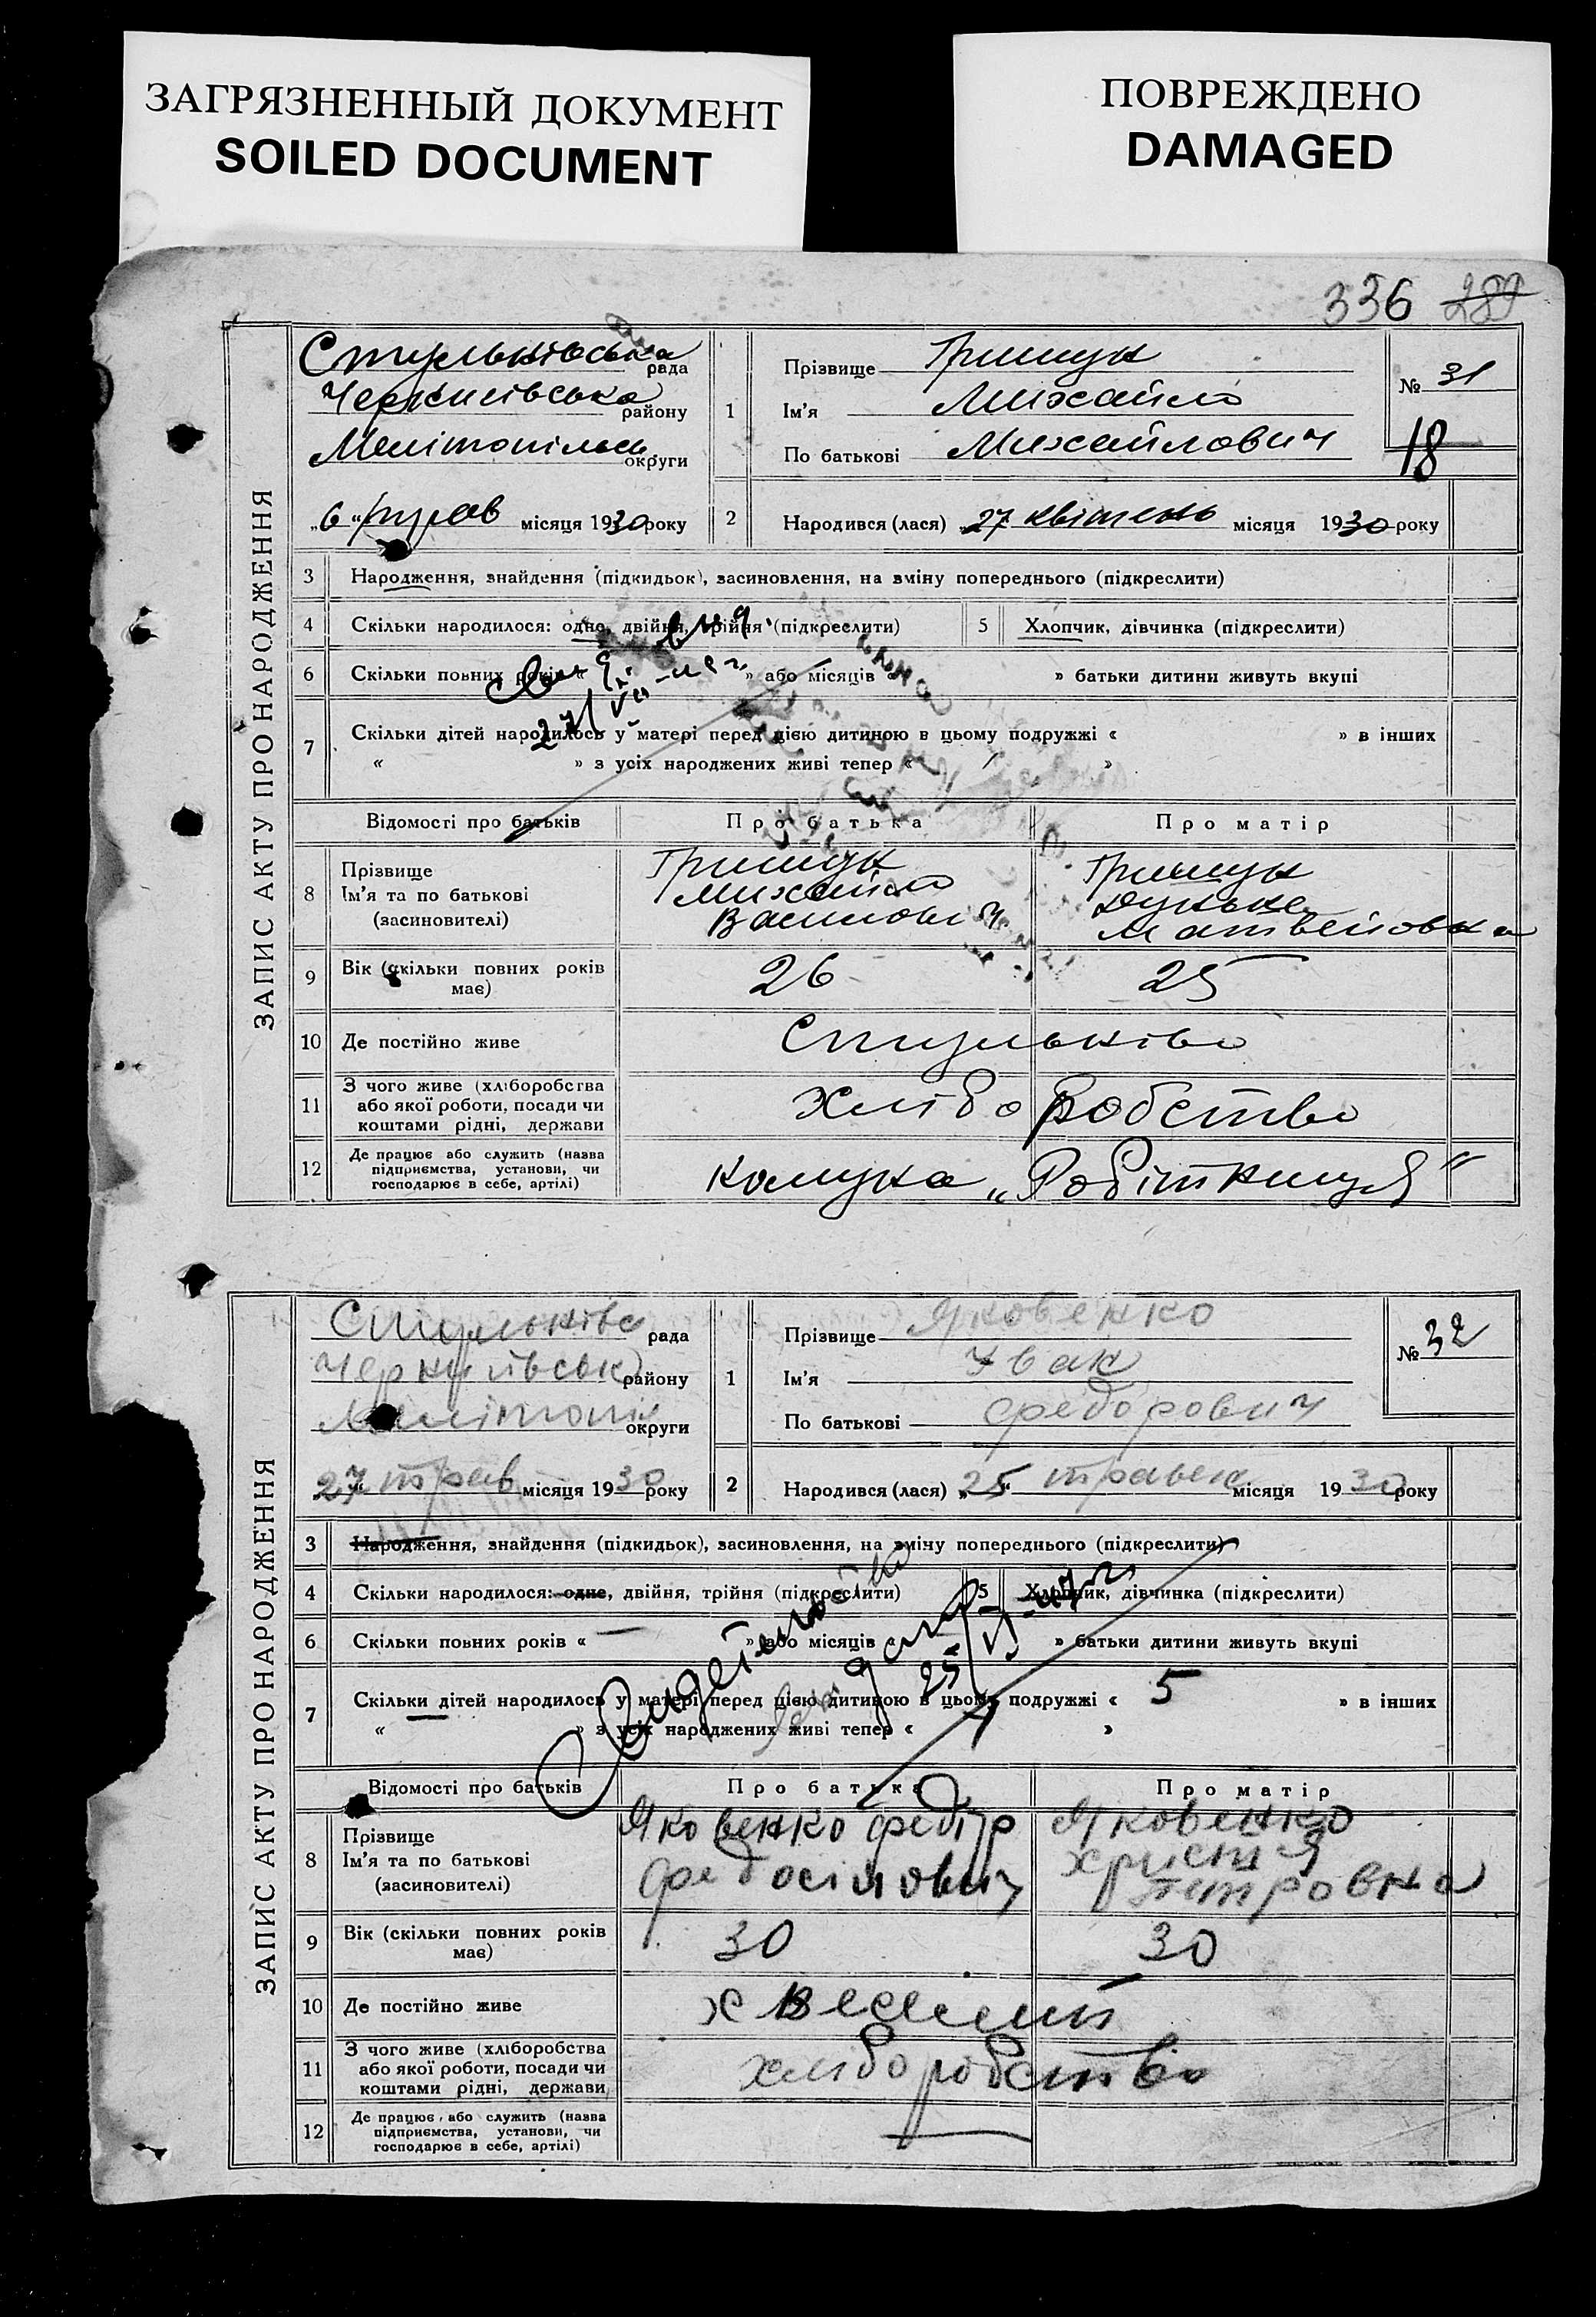 ЗАГРЯЗНЕННЫЙ ДОКУМЕНТ
SOILED DOCUMENT
ПОВРЕЖДЕНО
DAMAGED
336 289
ЗАПИС АКТУ ПРО НАРОДЖЕННЯ
Стульнівська рада
району
Мелітопільськ. округи
„6“ трав місяця 1930 року
1 Прізвище Грищук
Ім'я Михайло
По батькові Михайлович
№ 31
18
2 Народився (лася) „27 квітень місяця 1930 року
3 Народження, знайдення (підкидьок), засиновлення, на зміну попереднього (підкреслити)
4 Скільки народилося: одне, двійня, трійня (підкреслити)
5 Хлопчик, дівчинка (підкреслити)
6 Скільки повних років « » або місяців « » батьки дитини живуть вкупі
7 Скільки дітей народилось у матері перед цією дитиною в цьому подружжі « » в інших
« » з усіх народжених живі тепер « »
Відомості про батьків Про батька Про матір
8 Прізвище
Ім'я та по батькові
(засновителі)
Грищук
Михайло
Васильович
Грищук
Матвейовна
9 Вік (скільки повних років
має)
26 25
10 Де постійно живе Стульніво
11 З чого живе (хліборобства
або якої роботи, посади чи
коштами рідні, держави
Хліборобство
12 Де працює або служить (назва
підприємства, установи, чи
господарює в себе, артілі)
Комуна „Робітниця“
ЗАПИС АКТУ ПРО НАРОДЖЕННЯ
Стульнівс рада
району
Мелітопіл округи
27 трав місяця 1930 року
1 Прізвище Яковенко
Ім'я Іван
По батькові Федорович
№ 32
2 Народився (лася) „25“ травен місяця 1930 року
3 Народження, знайдення (підкидьок), засиновлення, на зміну попереднього (підкреслити)
4 Скільки народилося: одне, двійня, трійня (підкреслити)
5 Хлопчик, дівчинка (підкреслити)
6 Скільки повних років « — » або місяців « » батьки дитини живуть вкупі
7 Скільки дітей народилось у матері перед цією дитиною в цьому подружжі « 5 » в інших
« » з усіх народжених живі тепер « »
Відомості про батьків Про батька Про матір
8 Прізвище
Ім'я та по батькові
(засиновителі)
Яковенко Федір
Федосійович
Яковенко
Христя
Петровна
9 Вік (скільки повних років
має)
30 30
10 Де постійно живе х Веселий
11 З чого живе (хліборобства
або якої роботи, посади чи
коштами рідні, держави
хліборобство
12 Де працює або служить (назва
підприємства, установи, чи
господарює в себе, артілі)